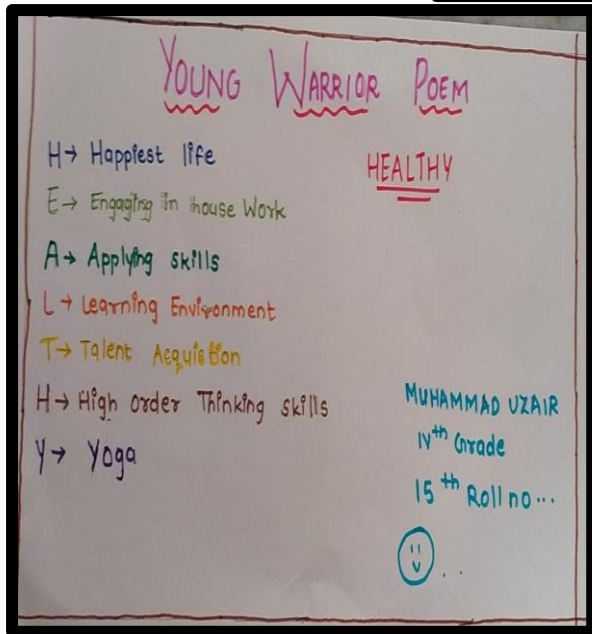 YOUNG WARRIOR POEM
HEALTHY
H→ Happiest life
E→ Engaging in house Work
A→ Applying skills
L→ Learning Environment
T→ Talent Acquistion
H→ High order Thinking skills
Y→ Yoga
MUHAMMAD UZAIR
IVth Grade
15th Roll no...